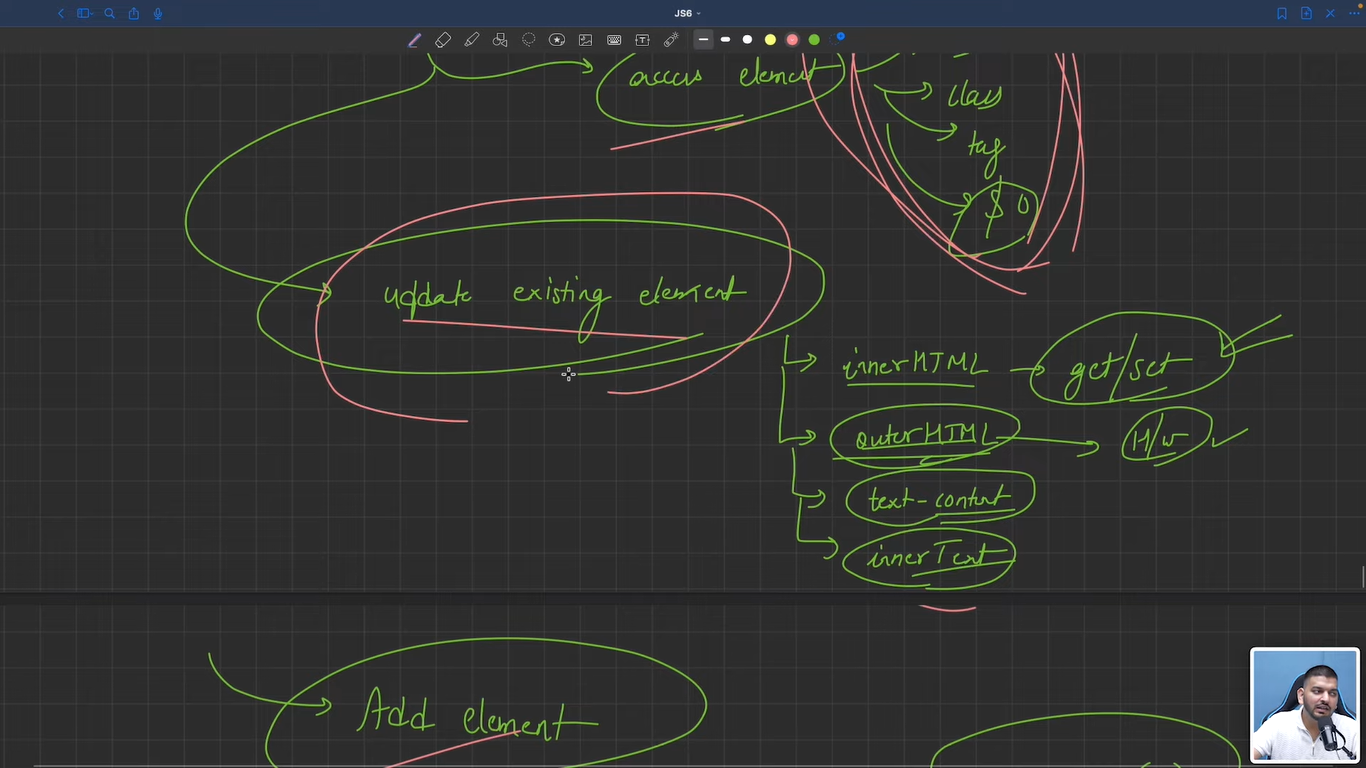 JS6
access element
class
tag
$0
update existing element
innerHTML
get/set
outerHTML
H/w
text-content
innerText
Add element